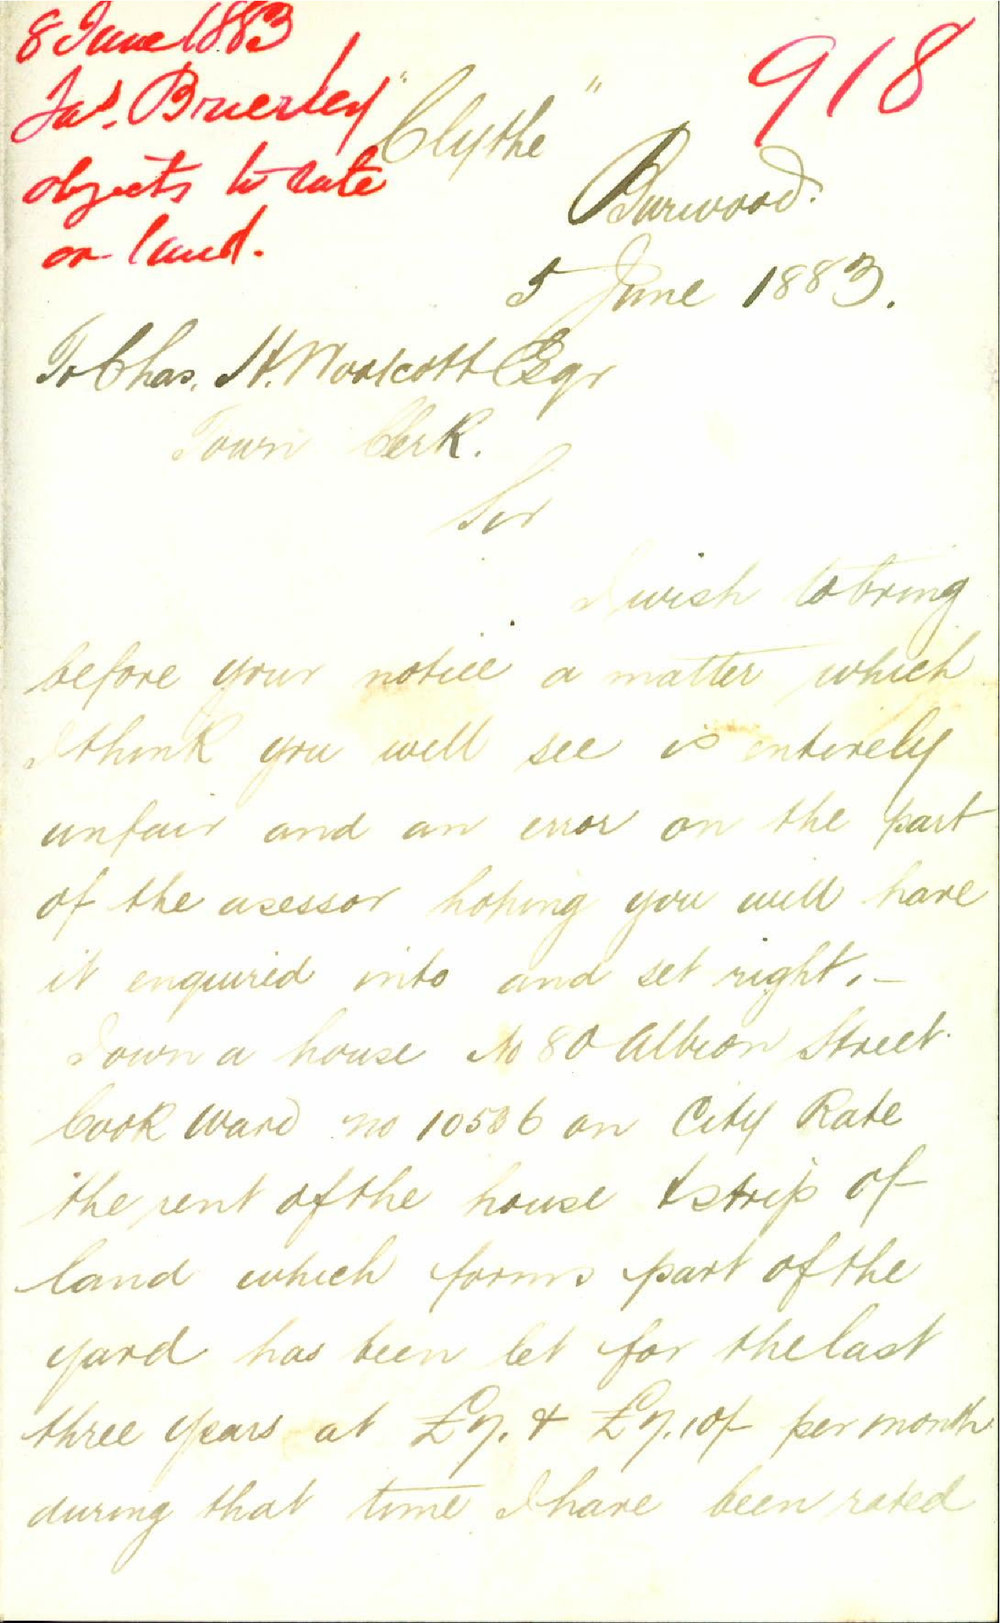 8 June 1883
Jas. Brierley
objects to rate
on land.
918
"Clythe"
Burwood.
5 June 1883.
To Chas. H. Woolcott Esqr
Town Clerk.
Sir
I wish to bring
before your notice a matter which
I think you will see is entirely
unfair and an error on the part
of the asessor hoping you will have
it enquired into and set right. –
I own a house No 80 Albion Street
Cook Ward no 10536 on City Rate
the rent of the house & strip of
land which forms part of the
yard has been let for the last
three years at £7. & £7.10/- per month
during that time I have been rated